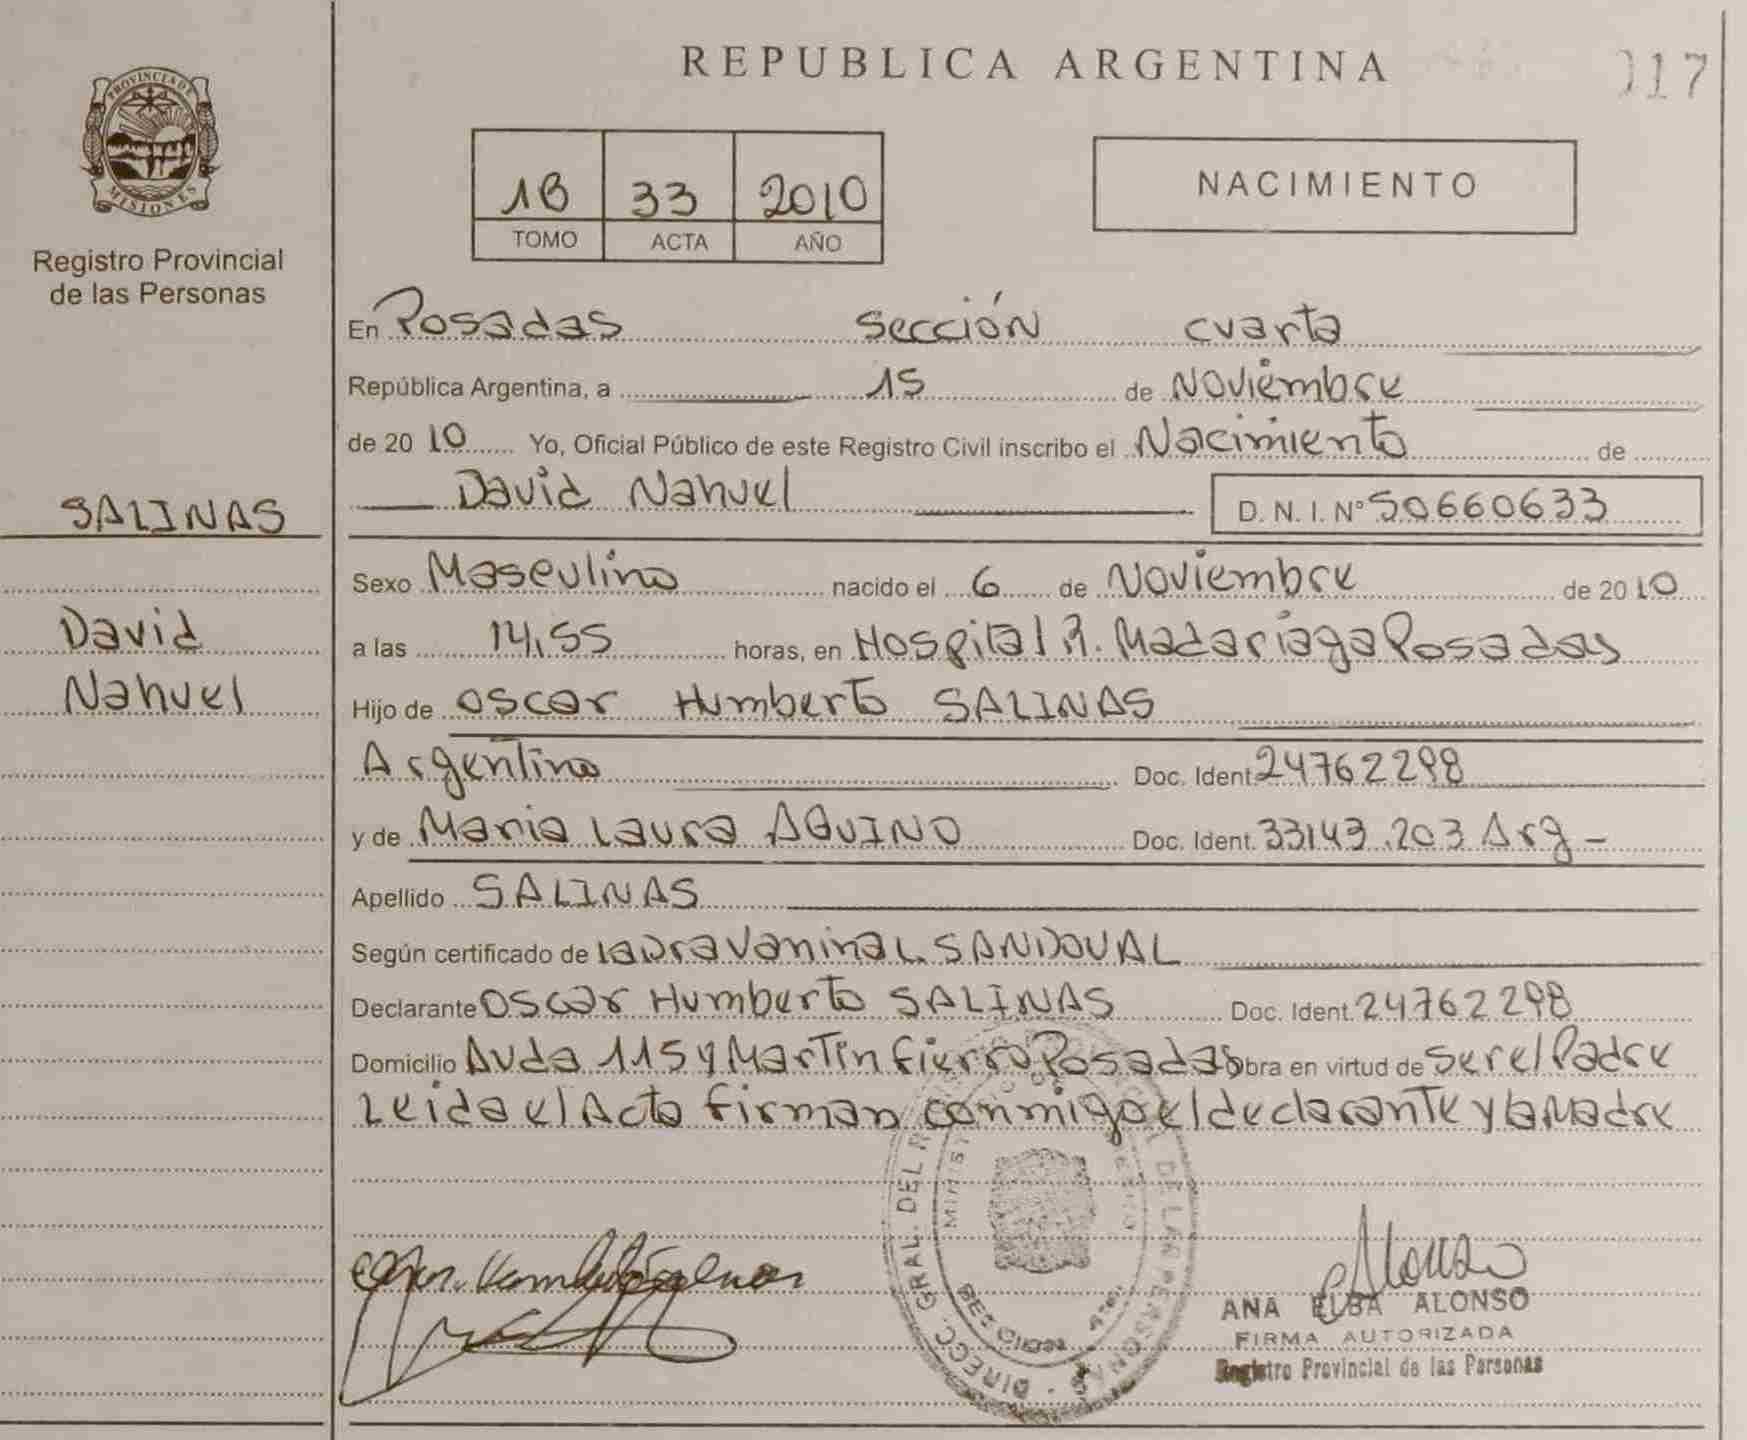 REPUBLICA ARGENTINA
017
PROVINCIA DE
MISIONES
Registro Provincial
de las Personas
1B 33 2010
TOMO ACTA AÑO
NACIMIENTO
En Posadas Sección cuarta
República Argentina, a 15 de Noviembre
de 2010 Yo, Oficial Público de este Registro Civil inscribo el Nacimiento de
David Nahuel D. N. I. N° 50660633
SALINAS
David
Nahuel
Sexo Masculino nacido el 6 de Noviembre de 2010
a las 14,55 horas, en Hospital R. Madariaga Posadas
Hijo de Oscar Humberto SALINAS
Argentino Doc. Ident. 24762298
y de Maria Laura AQUINO Doc. Ident. 33143.203 Arg -
Apellido SALINAS
Según certificado de Laura Vanina L. SANDOVAL
Declarante Oscar Humberto SALINAS Doc. Ident. 24762298
Domicilio Avda 115 y Martin Fierro Posadas Obra en virtud de ser el Padre
Leida el Acta firman conmigo el declarante y la Madre
DIRECC. GRAL. DEL DE LAS PERSONAS
Alonso
ANA ELBA ALONSO
FIRMA AUTORIZADA
Registro Provincial de las Personas